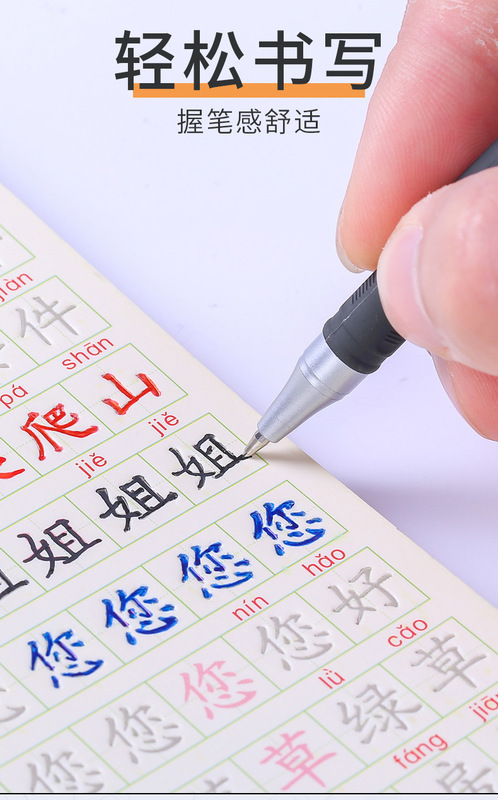 轻松书写
握笔感舒适
jiàn
件
pá shān
爬山
jiě jiě
姐姐姐姐
您您您您
nín hǎo
您您您您好
lǜ cǎo
草绿草
fáng
房